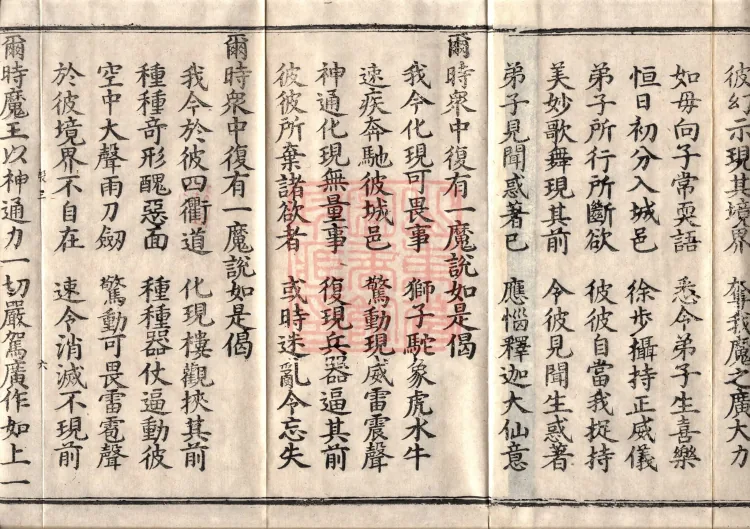 彼幻示現其境界 我魔之廣大力
如毋向子常耎語 悉令弟子生喜樂
恒日初分入城邑 徐步攝持正威儀
弟子所行所斷欲 彼彼自當我捉持
美妙歌舞現其前 令彼見聞生惑著
弟子見聞惑著已 應惱釋迦大仙意
爾時衆中復有一魔說如是偈
我令化現可畏事 獅子駝象虎水牛
速疾奔馳彼城邑 驚動現威雷震聲
神通化現無量事 復現兵器逼其前
彼彼所棄諸欲者 或時迷亂令忘失
爾時衆中復有一魔說如是偈
我今於彼四衢道 化現樓觀挾其前
種種奇形醜惡面 種種器仗逼動彼
空中大聲雨刀劔 驚動可畏雷雹聲
於彼境界不自在 速令消滅不現前
三 六
爾時魔王以神通力一切嚴駕廣作如上一